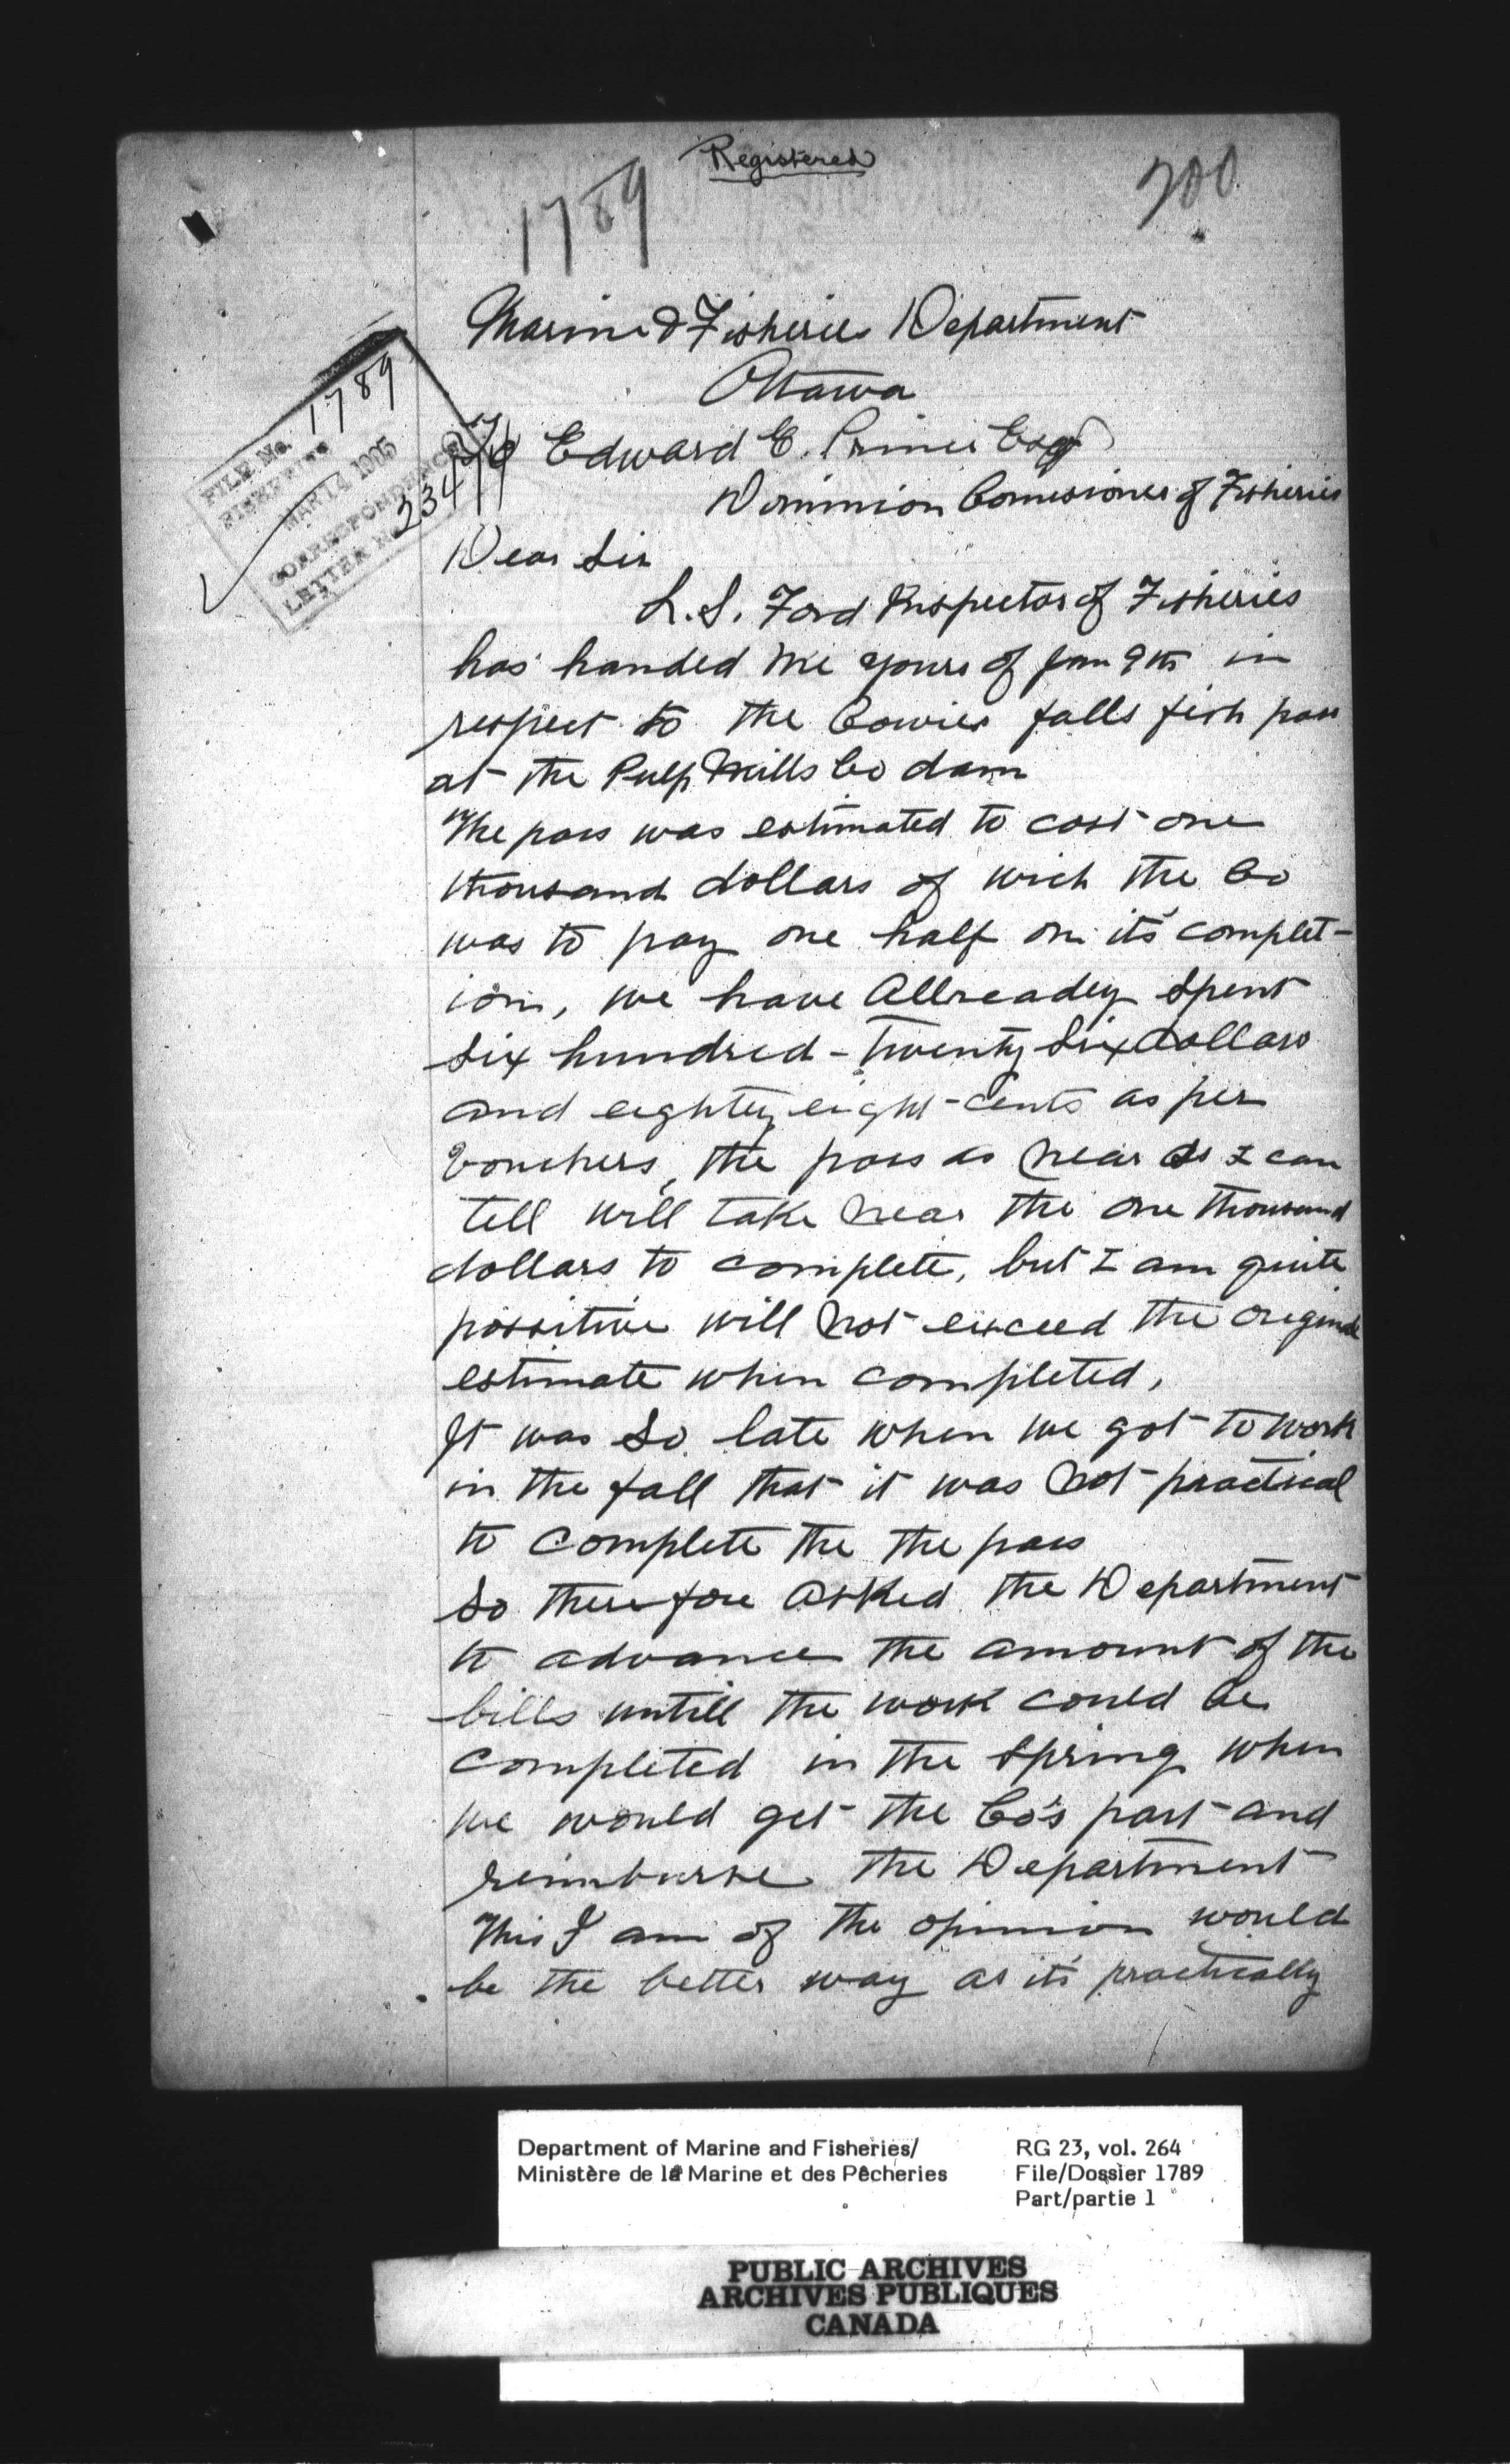 Registered
1789
200
Marine & Fisheries Department
Ottawa
To Edward E. Prince Esq
Dominion Comissioner of Fisheries
FILE No. 1789
FISHERIES
MAR 14 1905
CORRESPONDENCE
LETTER No
Dear Sir
L. S. Ford Inspector of Fisheries
has handed me yours of Jan 9th in
respect to the Cowies falls fish pass
at the Pulp Mills Co dam
The pass was estimated to cost one
thousand dollars of wich the Co
was to pay one half on it's complet-
ion, we have Allready Spent
Six hundred - Twenty Six dollars
and eighty eight cents as per
Vouchers, the pass as Near As I can
tell will take Near the one thousand
dollars to complete, but I am quite
possitive will Not exceed the original
estimate when completed,
It was So late when we got to work
in the fall that it was Not practical
to complete the the pass
So therefore asked the Department
to advance the amount of the
bills untill the work could be
completed in the Spring when
we would get the Co's part and
reimburse the Department
This I am of the opinion would
be the better way as it's practically
Department of Marine and Fisheries/
Ministère de la Marine et des Pêcheries
RG 23, vol. 264
File/Dossier 1789
Part/partie 1
PUBLIC ARCHIVES
ARCHIVES PUBLIQUES
CANADA